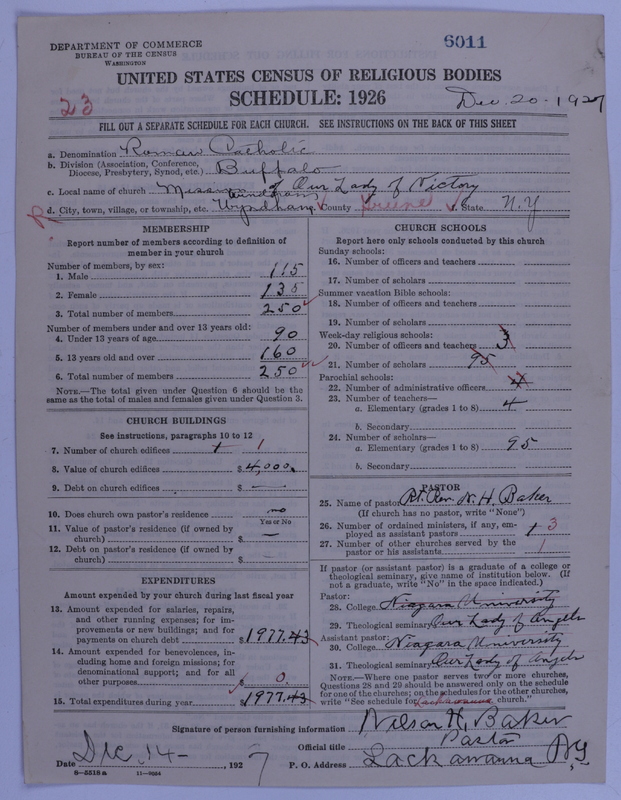 6011
DEPARTMENT OF COMMERCE
BUREAU OF THE CENSUS
WASHINGTON
UNITED STATES CENSUS OF RELIGIOUS BODIES
23
SCHEDULE: 1926
Dec. 20 - 1927
FILL OUT A SEPARATE SCHEDULE FOR EACH CHURCH. SEE INSTRUCTIONS ON THE BACK OF THIS SHEET
a. Denomination Roman Catholic
b. Division (Association, Conference, Diocese, Presbytery, Synod, etc.) Buffalo
c. Local name of church of Our Lady of Victory
R d. City, town, village, or township, etc. Wyndham County Greene f. State N.Y
MEMBERSHIP
Report number of members according to definition of member in your church
Number of members, by sex:
1. Male 115
2. Female 135
3. Total number of members 250
Number of members under and over 13 years old:
4. Under 13 years of age 90
5. 13 years old and over 160
6. Total number of members 250
NOTE.—The total given under Question 6 should be the same as the total of males and females given under Question 3.
CHURCH BUILDINGS
See instructions, paragraphs 10 to 12
7. Number of church edifices 1 1
8. Value of church edifices $4,000.
9. Debt on church edifices $ —
10. Does church own pastor's residence no
Yes or No
11. Value of pastor's residence (if owned by church) $ —
12. Debt on pastor's residence (if owned by church) $ —
EXPENDITURES
Amount expended by your church during last fiscal year
13. Amount expended for salaries, repairs, and other running expenses; for improvements or new buildings; and for payments on church debt $1977.43
14. Amount expended for benevolences, including home and foreign missions; for denominational support; and for all other purposes $ 0.
15. Total expenditures during year $1977.43
CHURCH SCHOOLS
Report here only schools conducted by this church
Sunday schools:
16. Number of officers and teachers
17. Number of scholars
Summer vacation Bible schools:
18. Number of officers and teachers
19. Number of scholars
Week-day religious schools:
20. Number of officers and teachers 3
21. Number of scholars 95
Parochial schools:
22. Number of administrative officers 4
23. Number of teachers—
a. Elementary (grades 1 to 8) 4
b. Secondary
24. Number of scholars—
a. Elementary (grades 1 to 8) 95
b. Secondary
PASTOR
25. Name of pastor Rt. Rev. N. H. Baker
(If church has no pastor, write "None")
26. Number of ordained ministers, if any, employed as assistant pastors 1 3
27. Number of other churches served by the pastor or his assistants 1
If pastor (or assistant pastor) is a graduate of a college or theological seminary, give name of institution below. (If not a graduate, write "No" in the space indicated.)
Pastor:
28. College Niagara University
29. Theological seminary Our Lady of Angels
Assistant pastor:
30. College Niagara University
31. Theological seminary Our Lady of Angels
NOTE.—Where one pastor serves two or more churches, Questions 28 and 29 should be answered only on the schedule for one of the churches; on the schedules for the other churches, write "See schedule for Lackawanna church."
Signature of person furnishing information Nelson H. Baker
Official title Pastor
Date Dec 14 - , 1927 P. O. Address Lackawanna N.Y.
8-5518 a 11-9064